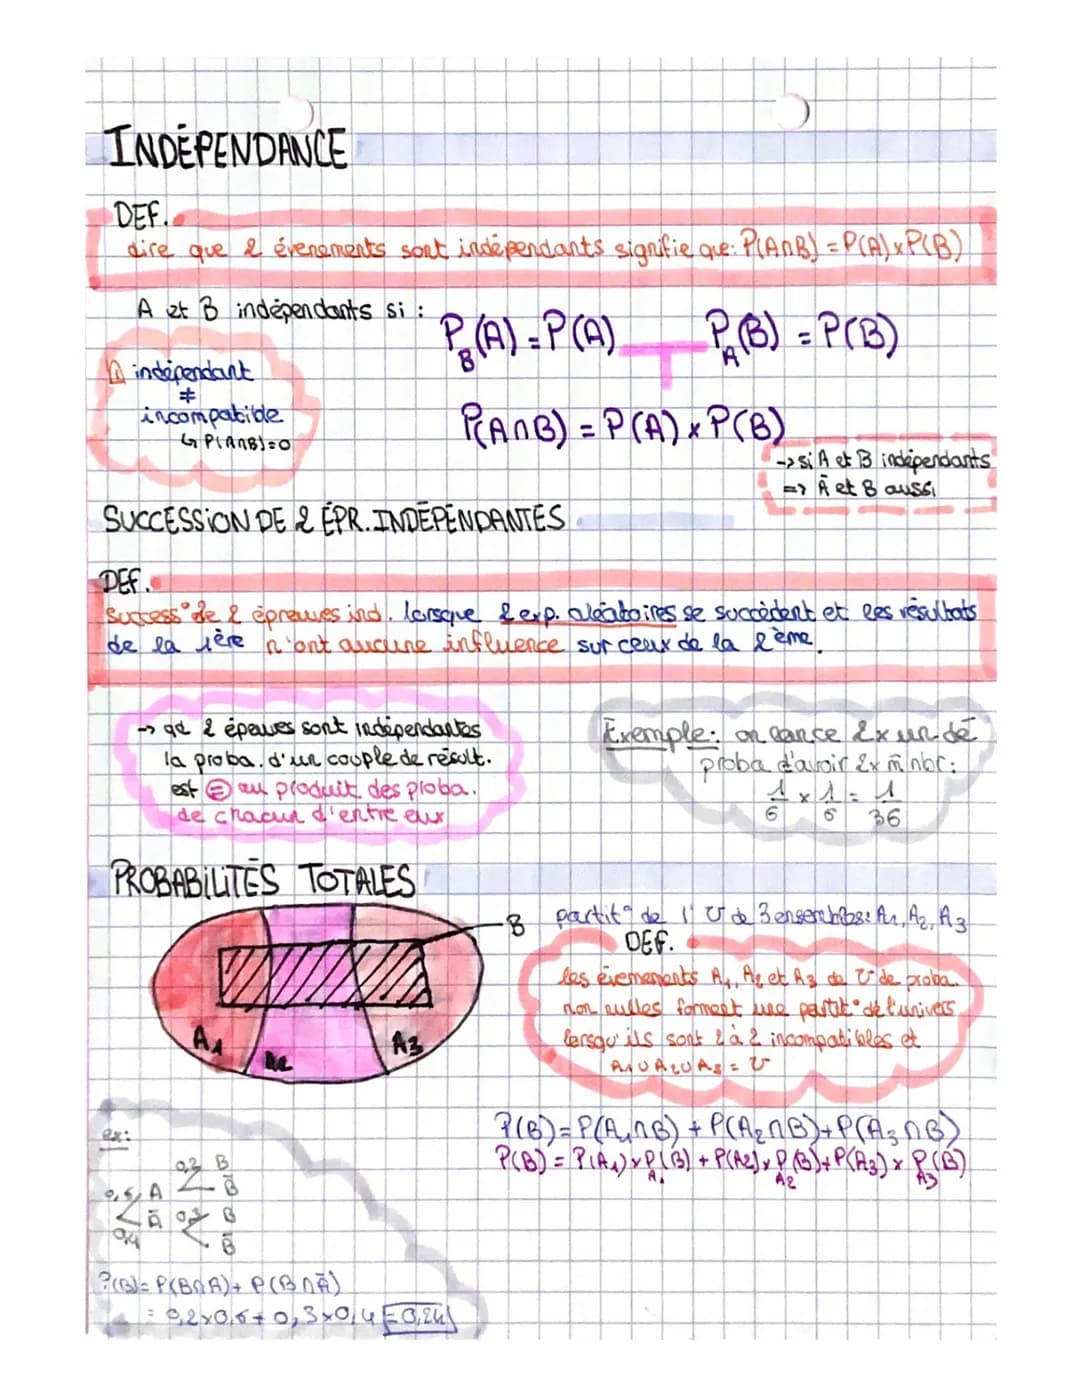 INDÉPENDANCE
DEF.
dire que 2 évenements sont indépendants signifie que: P(A∩B) = P(A) x P(B)
A et B indépendants si :
P_B(A) = P(A)
P_A(B) = P(B)
⚠ indépendant
≠
incompatible
↳ P(A∩B)=0
P(A∩B) = P(A) x P(B)
-> si A et B indépendants
=> Ā et B aussi
SUCCESSION DE 2 ÉPR. INDÉPENDANTES
DEF.
Success° de 2 épreuves ind. lorsque 2 exp. aléatoires se succèdent et les résultats
de la 1ère n'ont aucune influence sur ceux de la 2ème.
-> qd 2 épeuves sont indépendantes
la proba. d'un couple de résult.
est = au produit des proba.
de chacun d'entre eux
Exemple: on lance 2x un dé
proba d'avoir 2x m̂ nbr:
1/6 x 1/6 = 1/36
PROBABILITÉS TOTALES
B
A1
A2
A3
partit° de l'U de 3 ensembles: A1, A2, A3
DEF.
les évenements A1, A2 et A3 de U de proba.
non nulles forment une partit° de l'univers
lorsqu'ils sont 2 à 2 incompatibles et
A1 ∪ A2 ∪ A3 = U
P(B) = P(A1∩B) + P(A2∩B) + P(A3∩B)
P(B) = P(A1) x P_A1(B) + P(A2) x P_A2(B) + P(A3) x P_A3(B)
ex:
0,2 B
0,6 A B̄
Ā 0,3 B
0,4 B̄
P(B) = P(B∩A) + P(B∩Ā)
= 0,2x0,6 + 0,3x0,4 = 0,24